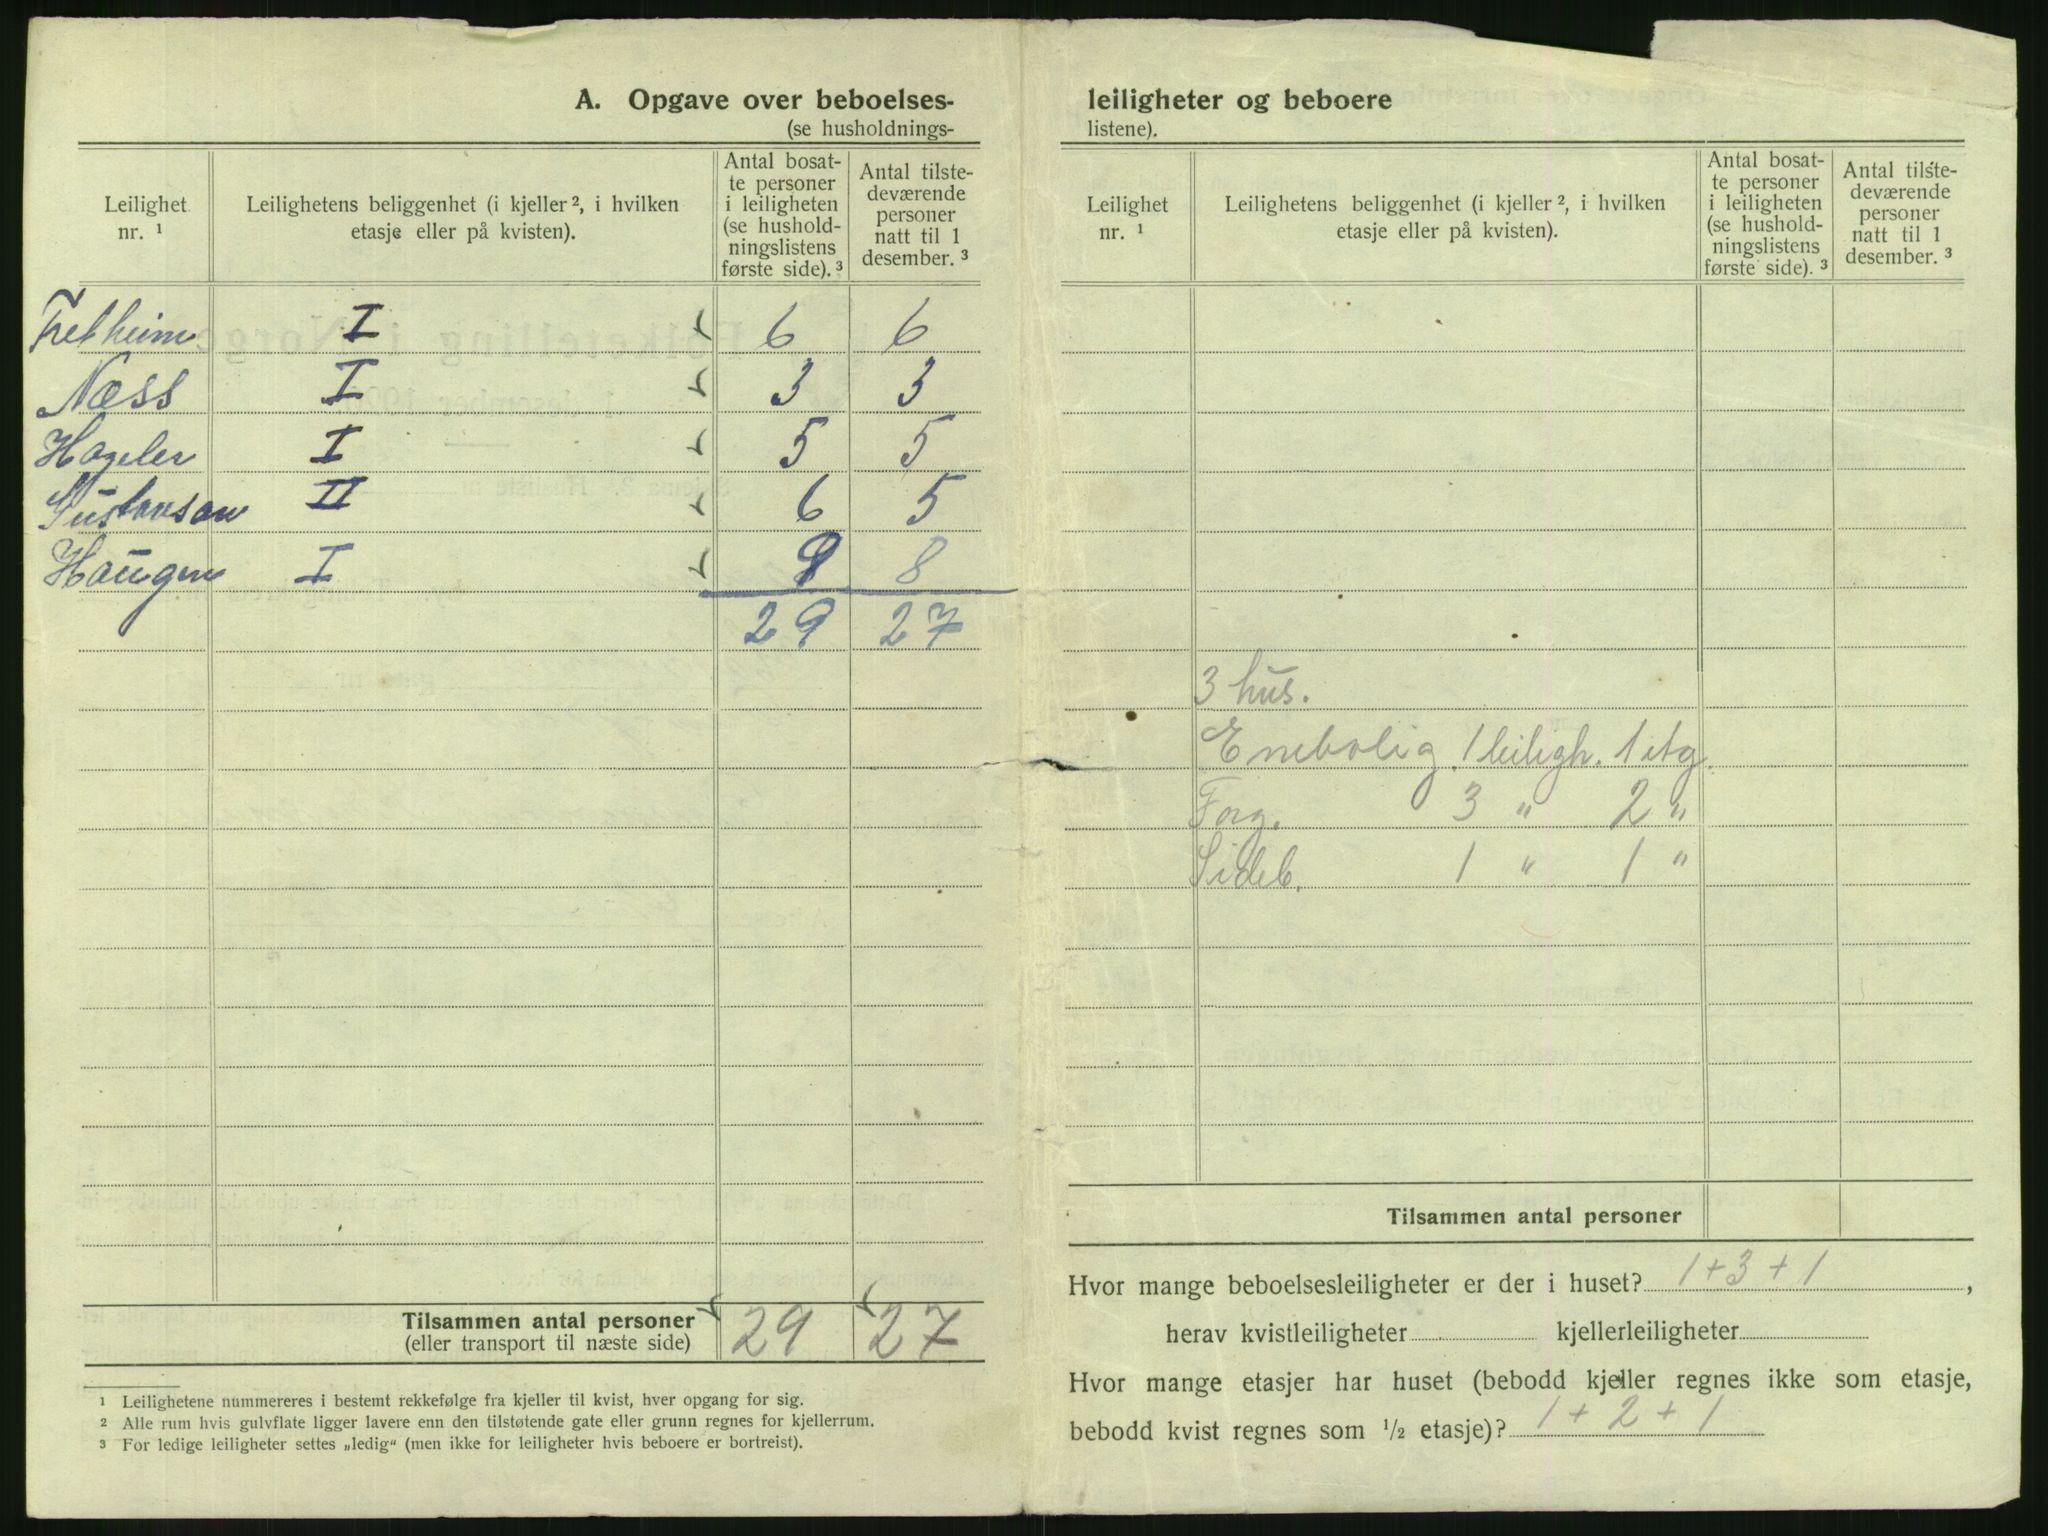 A. Opgave over beboelses-
(se husholdnings-
Leilighet nr. ¹
Leilighetens beliggenhet (i kjeller ², i hvilken etasje eller på kvisten).
Antal bosatte personer i leiligheten (se husholdningslistens første side). ³
Antal tilstedeværende personer natt til 1 desember. ³
Fretheim I 6 6
Næss I 3 3
Hageler I 5 5
Gustavson II 6 5
Haugen I 9 8
29 27
Tilsammen antal personer 29 27
(eller transport til næste side)
¹ Leilighetene nummereres i bestemt rekkefølge fra kjeller til kvist, hver opgang for sig.
² Alle rum hvis gulvflate ligger lavere enn den tilstøtende gate eller grunn regnes for kjellerrum.
³ For ledige leiligheter settes „ledig“ (men ikke for leiligheter hvis beboere er bortreist).
leiligheter og beboere
listene).
Leilighet nr. ¹
Leilighetens beliggenhet (i kjeller ², i hvilken etasje eller på kvisten).
Antal bosatte personer i leiligheten (se husholdningslistens første side). ³
Antal tilstedeværende personer natt til 1 desember. ³
3 hus.
Enebolig 1 leiligh. 1 etg.
Forg. 3 " 2 "
Sideb. 1 " 1 "
Tilsammen antal personer
Hvor mange beboelsesleiligheter er der i huset? 1+3+1,
herav kvistleiligheter kjellerleiligheter
Hvor mange etasjer har huset (bebodd kjeller regnes ikke som etasje,
bebodd kvist regnes som ½ etasje)? 1+2+1